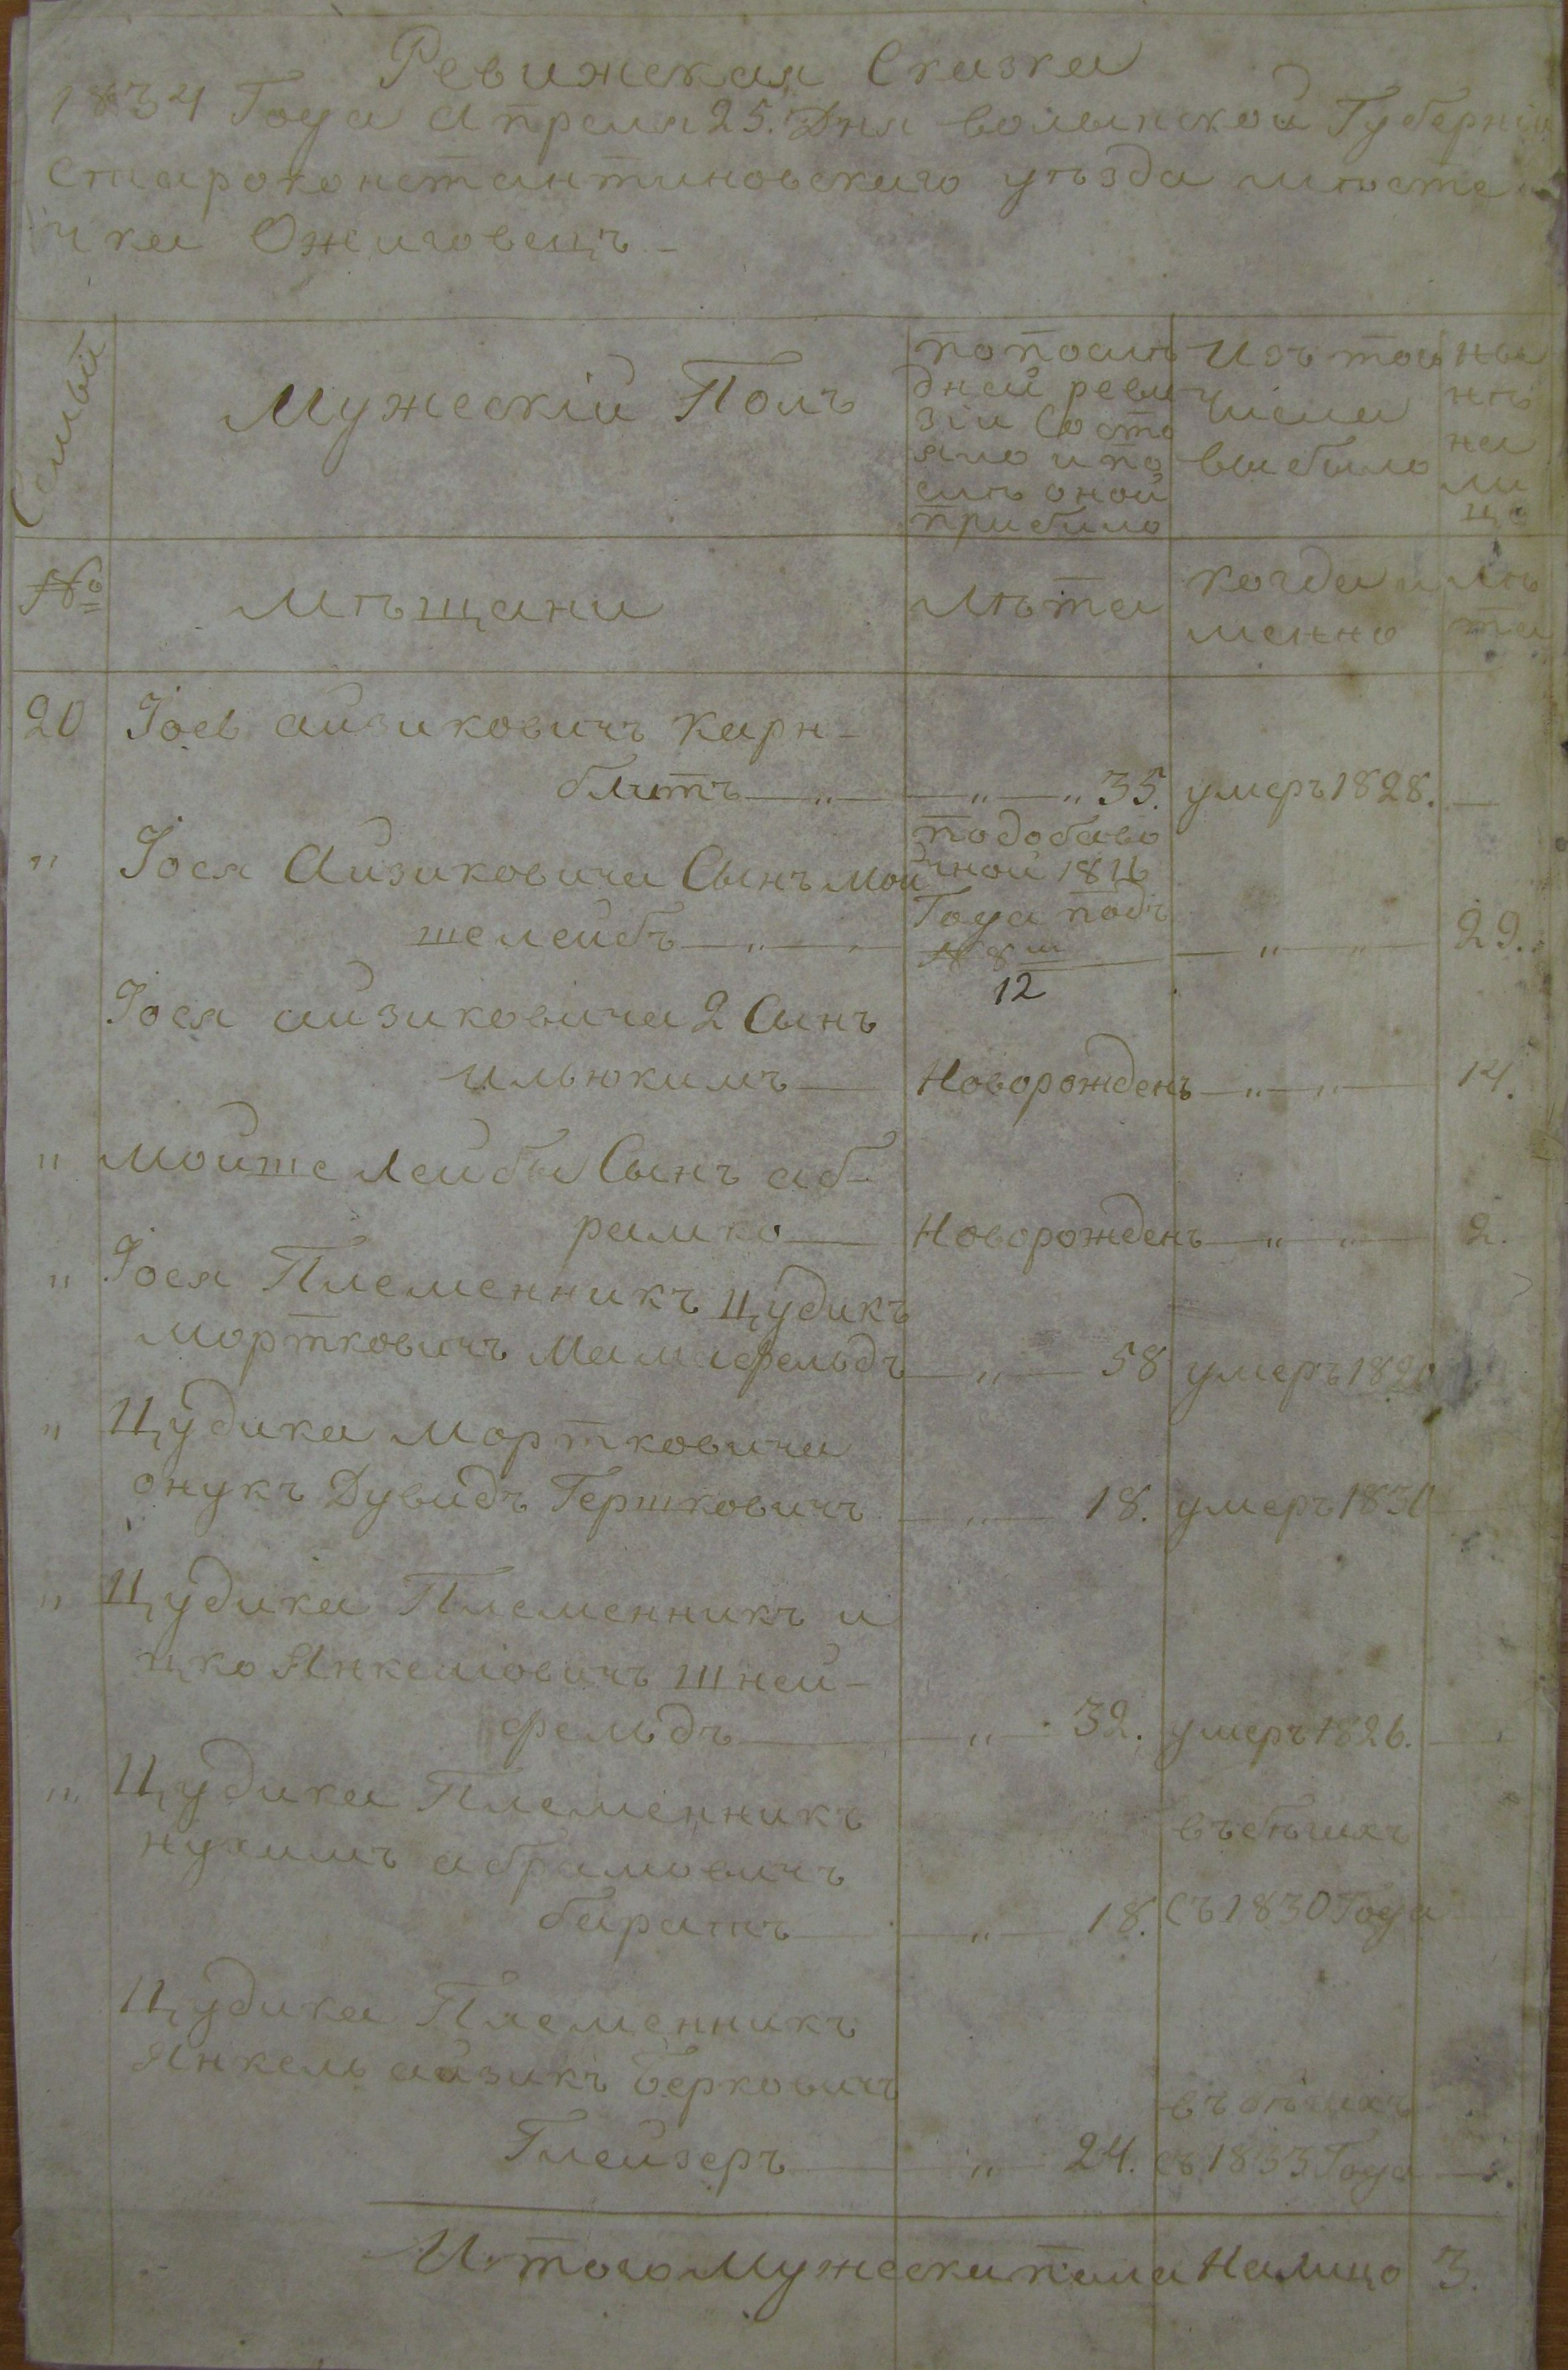 Ревижская Сказка
1834 Года Апреля 25. Дня волынской Губерніи
Староконстантиновского уѣзда мѣсте
чка Ожиговецъ –
Семьи
Мужескій Полъ
попослѣ
дней реви
зіи Состо
яло и по
слѣ оной
прибыло
Изъ того
числа
выбыло
ны
нѣ
на
ли
цо
№
мѣщани
лѣта
когда и
менно
лѣ
та
20 Іось айзиковичъ Карн-
блитъ —„— —„—„ 35. умеръ 1828. —
подобаво
„ Іося Айзиковича Сынъ мой чной 1816
Года подъ
шелейбъ —„— № 8 ш —„—„— 29.
12
Іося айзиковича 2 Сынъ
ильюкимъ — Новорожденъ —„—„— 14.
„ мойше Лейбы Сынъ аб-
рамко — Новорожденъ —„—„— 2.
„ Іося Племенникъ Цудикъ
мортковичъ Мамлфельдъ —„— 58 умеръ 1820
„ Цудика мортковича
онукъ Дувидъ Гершковичъ —„— 18. умеръ 1830
„ Цудика Племенникъ и
цко Янкеліовичъ шней-
фельдъ — —„— 32. умеръ 1826. —
„ Цудика Племенникъ
нухимъ абрамовичъ въ бѣгахъ
баратъ — —„— 18. Съ 1830 Года
Цудика Племенникъ
Янкель айзикъ Берковичъ въ бѣгахъ
Глейзеръ — —„— 24. съ 1833 Года —
Итого Мужеска пола Налицо 3.